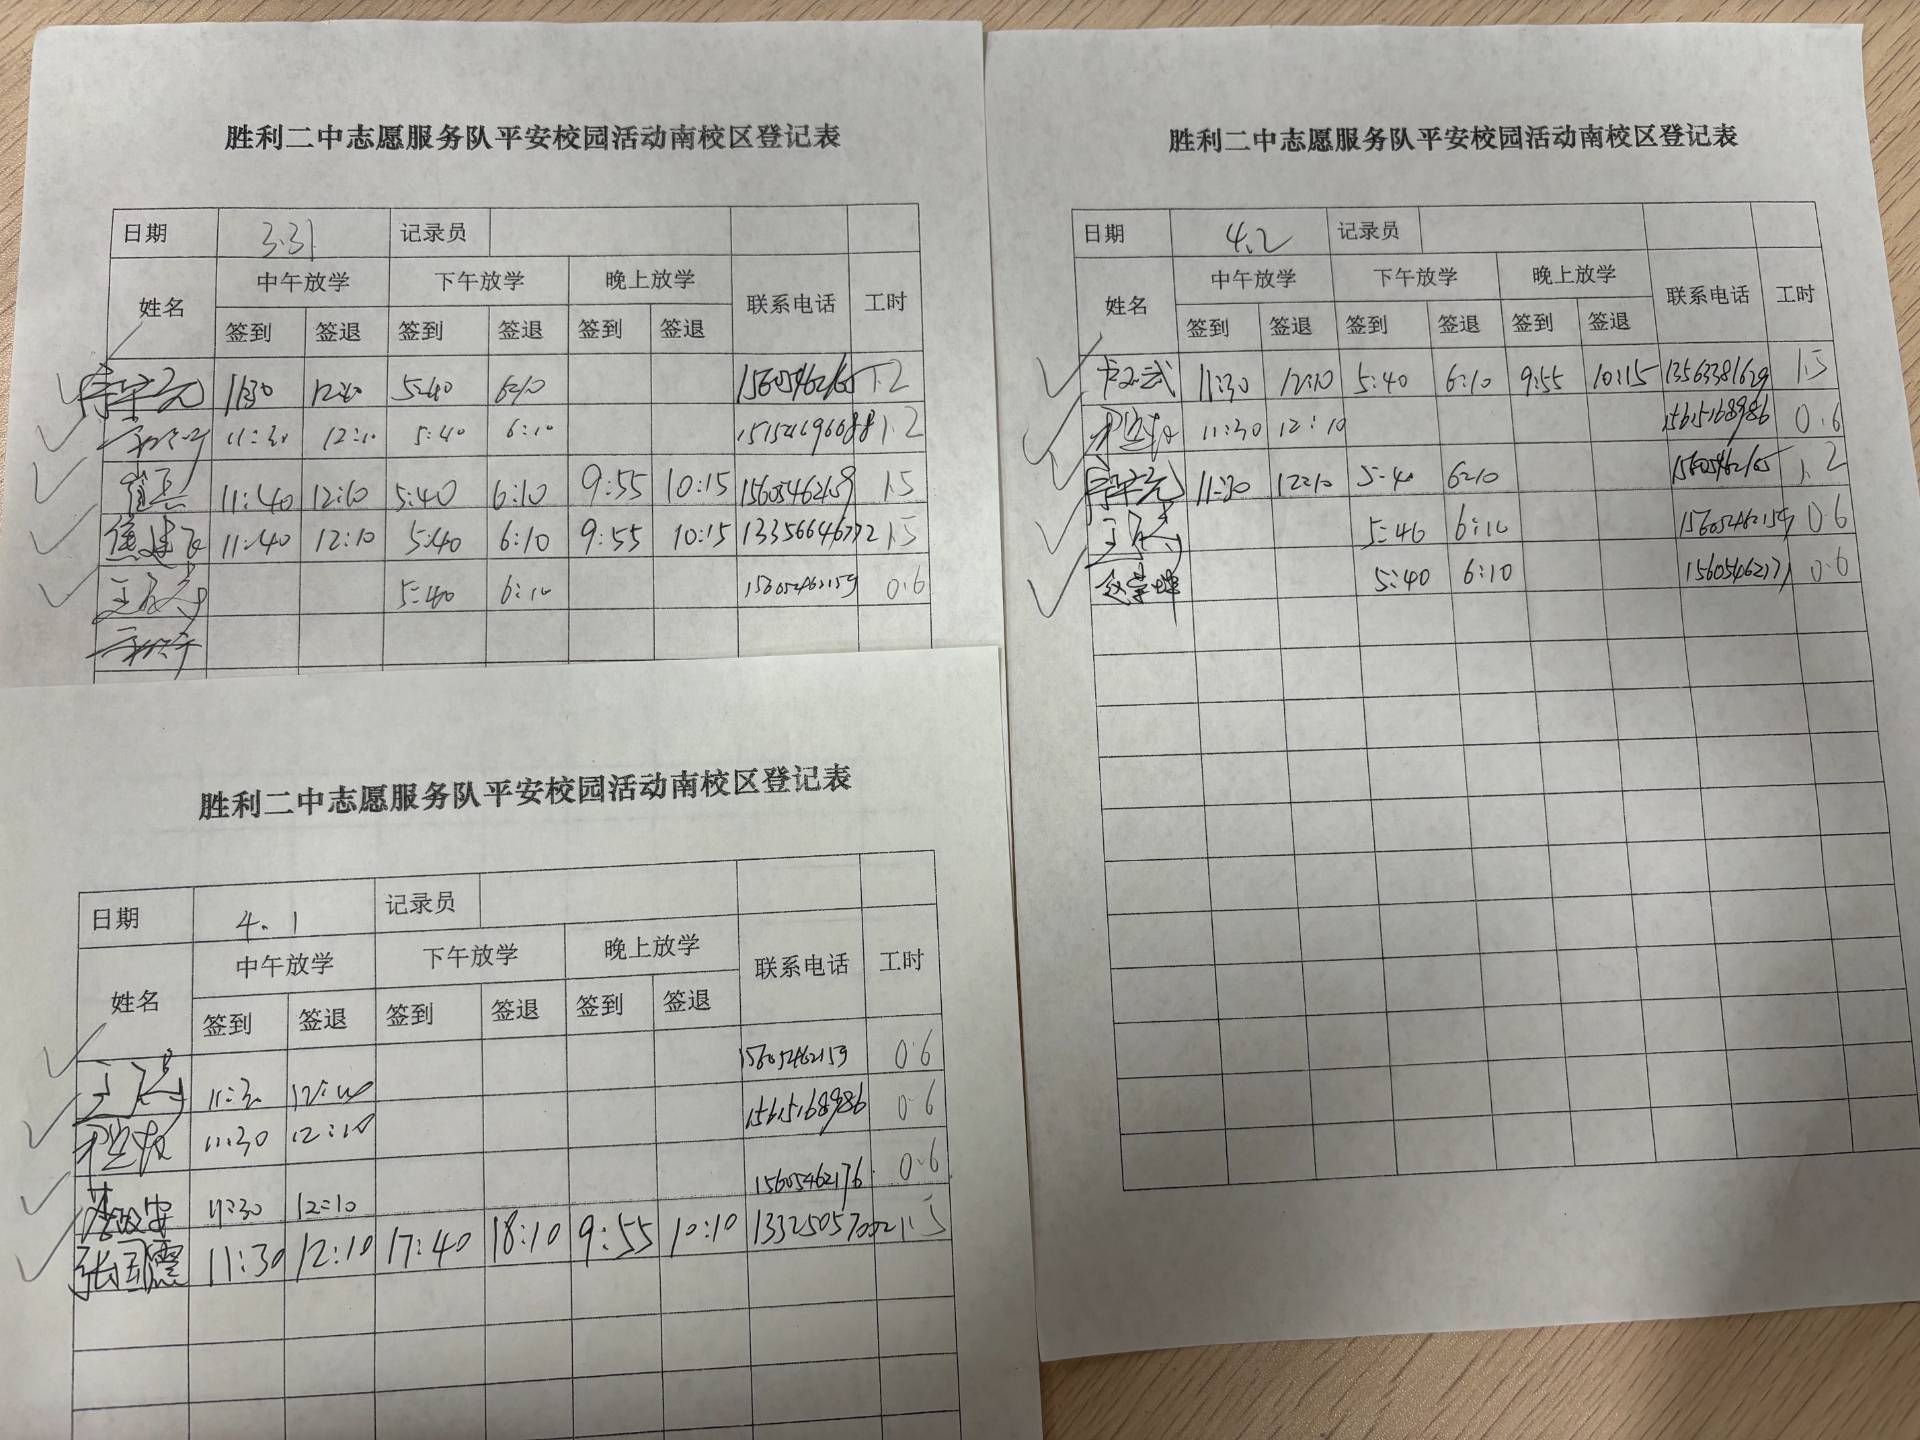 胜利二中志愿服务队平安校园活动南校区登记表
日期 3.31 记录员
姓名 中午放学 下午放学 晚上放学 联系电话 工时
签到 签退 签到 签退 签到 签退
11:30 5:40 15605462165 1.2
11:30 12:10 5:40 6:10 1.2
11:40 12:10 5:40 6:10 9:55 10:15 15605462159 1.5
焦建飞 11:40 12:10 5:40 6:10 9:55 10:15 13356646772 1.5
5:40 6:10 15605462159 0.6
胜利二中志愿服务队平安校园活动南校区登记表
日期 4.1 记录员
姓名 中午放学 下午放学 晚上放学 联系电话 工时
签到 签退 签到 签退 签到 签退
11:30 15605462159 0.6
11:30 12:10 15615168986 0.6
11:30 12:10 15605462176 0.6
张国震 11:30 12:10 17:40 18:10 9:55 10:10 13325057002 1.5
胜利二中志愿服务队平安校园活动南校区登记表
日期 4.2 记录员
姓名 中午放学 下午放学 晚上放学 联系电话 工时
签到 签退 签到 签退 签到 签退
11:30 12:10 5:40 6:10 9:55 10:15 13563381629 1.5
11:30 12:10 15615168986 0.6
11:30 12:10 5:40 6:10 15605462165 1.2
5:40 6:10 15605462159 0.6
5:40 6:10 15605462171 0.6